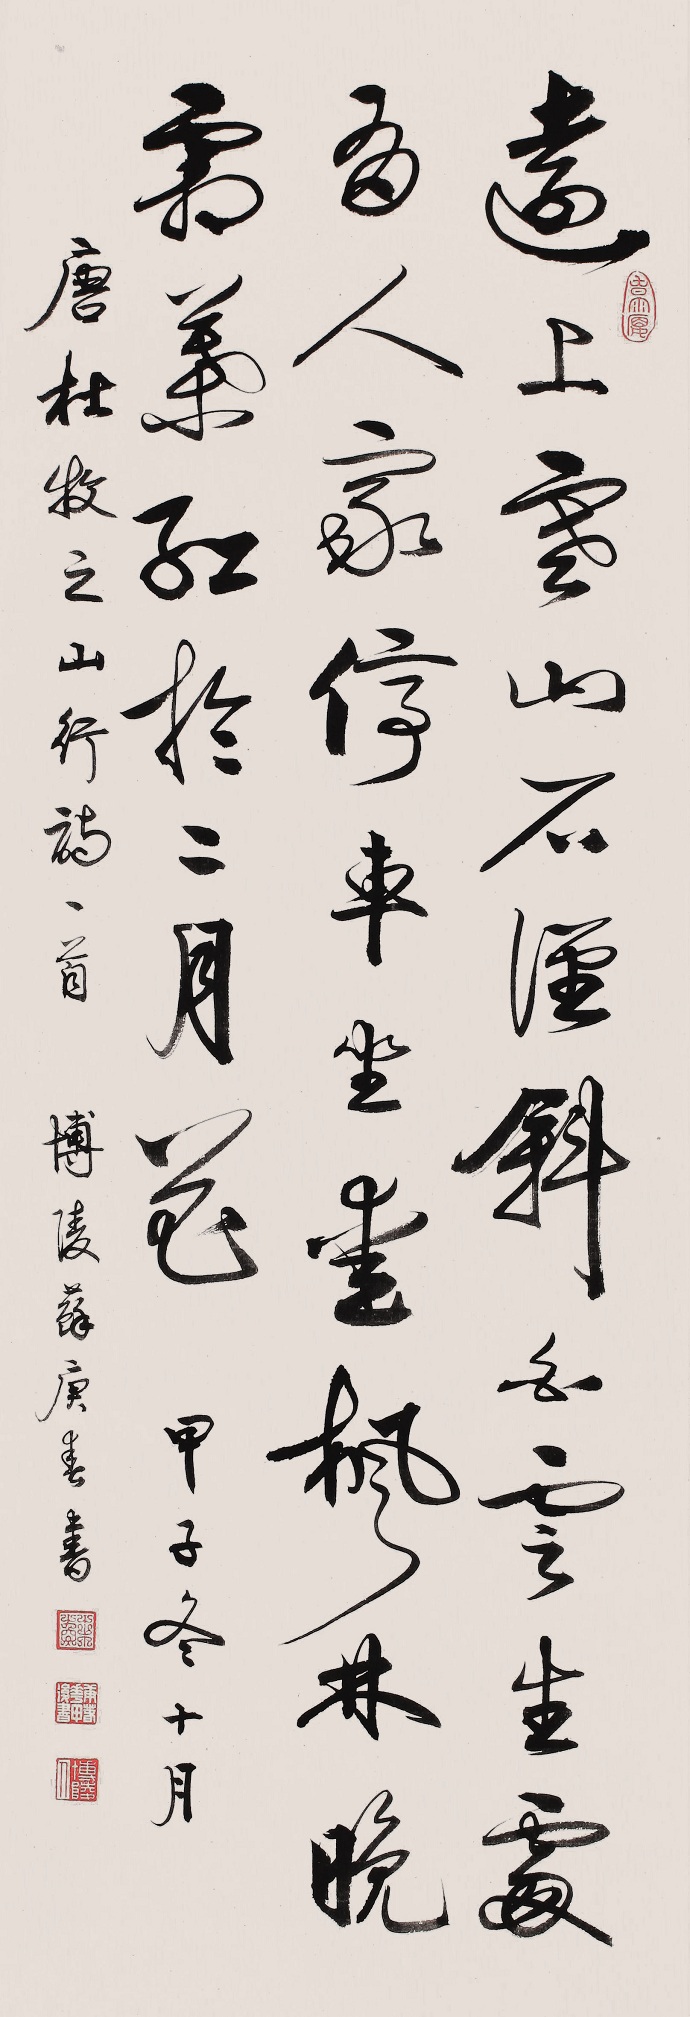 遠上寒山石徑斜白雲生處
有人家停車坐愛楓林晚
霜葉紅於二月花 甲子冬十月
唐杜牧之山行詩一首 博陵蘇庚春書